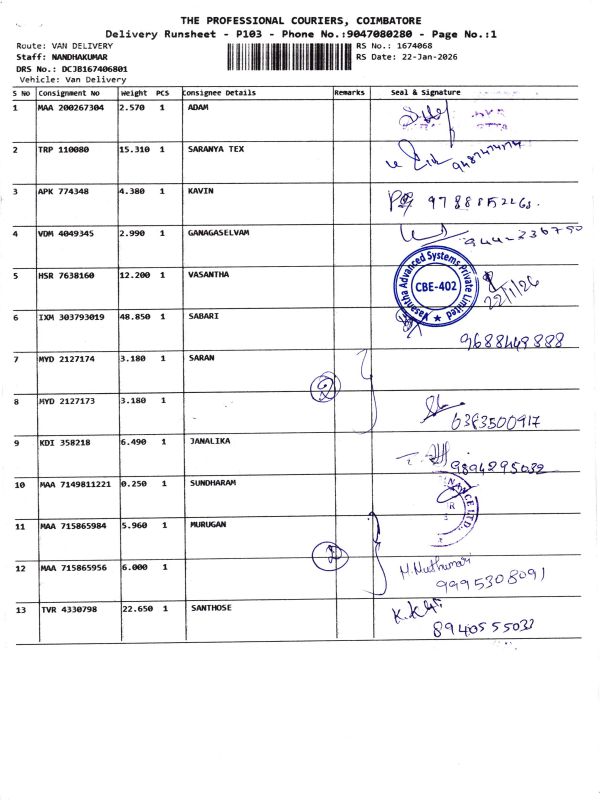 THE PROFESSIONAL COURIERS, COIMBATORE
Delivery Runsheet - P103 - Phone No.:9047080280 - Page No.:1
Route: VAN DELIVERY RS No.: 1674068
Staff: NANDHAKUMAR RS Date: 22-Jan-2026
DRS No.: DCJB167406801
Vehicle: Van Delivery
S No Consignment No Weight PCS Consignee Details Remarks Seal & Signature
1 MAA 200267304 2.570 1 ADAM
2 TRP 110080 15.310 1 SARANYA TEX
3 APK 774348 4.380 1 KAVIN
4 VDM 4049345 2.990 1 GANAGASELVAM
5 HSR 7638160 12.200 1 VASANTHA
Vasantha Advanced Systems Private Limited
CBE-402
22/1/26
6 IXM 303793019 48.850 1 SABARI
9688449888
7 MYD 2127174 3.180 1 SARAN
2
8 MYD 2127173 3.180 1
6383500917
9 KDI 358218 6.490 1 JANALIKA
9894295032
10 MAA 7149811221 0.250 1 SUNDHARAM
11 MAA 715865984 5.960 1 MURUGAN
2
12 MAA 715865956 6.000 1
M. Muthumari
9995308091
13 TVR 4330798 22.650 1 SANTHOSE
8940555033